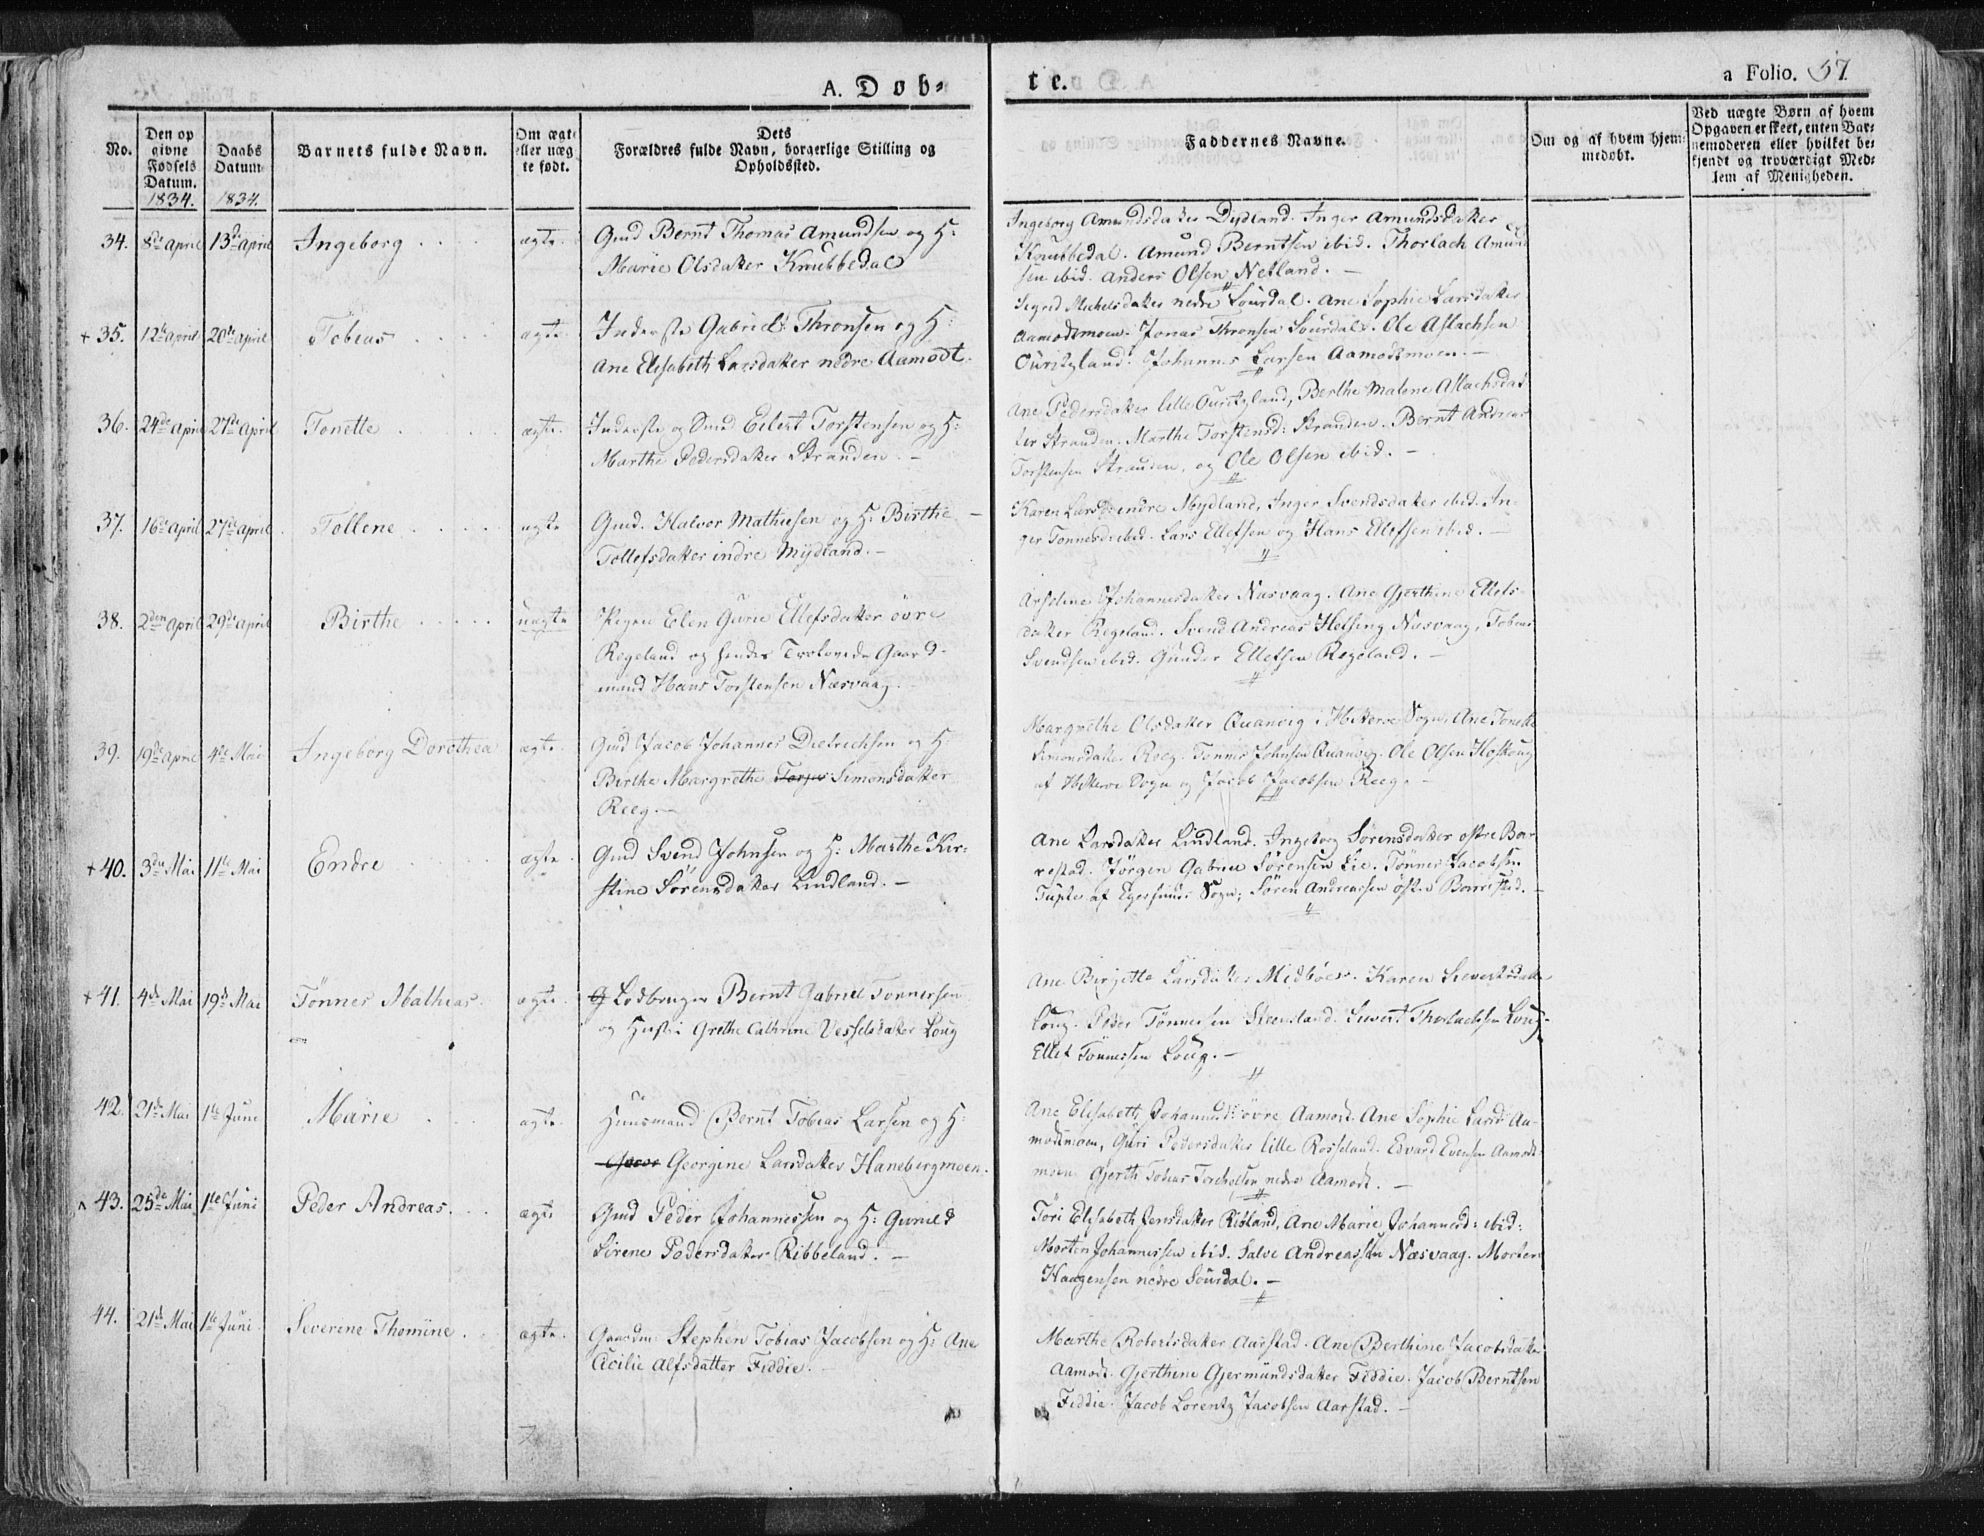 A. Døb-
te.
a Folio. 57.
No.
Den op
givne
Fødsels
Datum.
1834.
Daabs
Datum
1834.
Barnets fulde Navn.
Om ægte
eller uæg
te født.
Dets
Forældres fulde Navn, borgerlige Stilling og
Opholdssted.
Faddernes Navne.
Om og af hvem hjem-
medøbt.
Ved uægte Børn af hvem
Opgaven er skeet, enten Bar-
nemoderen eller hvilket be-
kjendt og troværdigt Med-
lem af Menigheden.
34. 8de April 13de April Ingeborg ægte.
Gmd Bernt Thomas Amundsen og H:
Marie Olsdatter Knubbedal
Ingeborg Amundsdatter Dydland. Inger Amundsdatter
Knubbedal. Amund Berntsen ibid. Thorlach Amund
sen ibid. Anders Olsen Netland. –
+ 35. 12te April 20de April Tobias ægte.
Inderste Gabriel Thronsen og H:
Ane Elisabeth Larsdatter nedre Aamodt.
Sigred Mickelsdatter nedre Sourdal. Ane Sophie Larsdatter
Aamodtmoen. Jonas Thronsen Sourdal. Ole Aslachsen
Ouritzland. Johannes Larsen Aamodtmoen. –
36. 24de April 27de April Tonette ægte.
Inderste og Smed Eilert Torstensen og H:
Marthe Pedersdatter Stranden. –
Ane Pedersdatter lille Ouritzland, Berthe Malene Aslachsdat
ter Stranden. Marthe Torstensd: Stranden. Bernt Andreas
Torstensen Stranden, og Ole Olsen ibid. –
37. 16de April 27de April Tollene ægte
Gmd. Halvor Mathiesen og H: Birthe
Tollefsdatter indre Mydland. –
Karen Larsd: indre Mydland, Inger Svendsdatter ibid. In-
ger Tonnesd: ibid. Lars Ellefsen og Hans Ellefsen ibid. –
38. 2den April 29de April Birthe uægte
Pigen Elen Gurie Ellefsdatter övre
Regeland og hendes Trolovede Gaard-
mand Hans Torstensen Næsvaag.
Johannesdatter Næsvaag. Ane Gjerthine Ellefs-
datter Regeland. Svend Andreas Helsing Næsvaag, Tobias
Svendsen ibid. Gunder Ellefsen Regeland. –
39. 19de April 4de Mai Ingeborg Dorothea ægte.
Gmd Jacob Johannes Dietrichsen og H:
Birthe Margrethe Simonsdatter
Reeg. –
Margrethe Olsdatter Quanvig i Hitterøe Sogn, Ane Tonette
Simonsdatter Reeg. Tonnes Johnsen Quanvig. Ole Olsen
af Hitterøe Sogn og Jacob Jacobsen Reeg. –
+ 40. 3die Mai 11te Mai Endre ægte.
Gmd Svend Johnsen og H: Marthe Kir-
stine Sörensdatter Lindland. –
Ane Larsdatter Lindland. Ingeborg Sörensdatter ostre Bar
restad. Jörgen Gabriel Sörensen Lie. Tönnes Jacobsen
af Egersunds Sogn; Sören Andreassen östre Barrestad. –
+ 41. 4de Mai 19de Mai Tönnes Mathias. ægte.
Lodbruger Bernt Gabriel Tonnessen
og Hustru Grethe Cathrine Vesselsdatter Loug
Ane Birgitte Larsdatter Midböe. Karen Sivertsdatter
Loug. Peder Tönnessen Steensland. Sivert Thorlachsen Loug.
Ellef Tönnessen Loug. –
42. 21de Mai 1te Juni Marie ægte.
Huusmand Bernt Tobias Larsen og H:
Georgine Larsdatter Hanebergmoen.
Ane Elisabeth Johannesd: övre Aamodt. Ane Sophie Larsd: Aa-
modtmoen, Guri Pedersdatter lille Rosseland. Edvard Evensen Aamodt-
moen. Gjerth Tobias Torkelsen nedre Aamodt. –
43. 25de Mai 1te Juni Peder Andreas. ægte
Gmd Peder Johannessen og H: Gunild
Sirene Pedersdatter Ribbeland. –
Töri Elisabeth Jensdatter Ribland, Ane Marie Johannesd: ibid:
Morten Johannessen ibid. Salve Andreassen Næsvaag. Morten
Haagensen nedre Sourdal. –
44. 21de Mai 1te Juni Severine Thomine. ægte.
Gaardm: Stephen Tobias Jacobsen og H: Ane
Cicilie Alfsdatter Fiddie.
Marthe Robertsdatter Aarstad. Ane Berthine Jacobsdatter
Aamodt. Gjerthine Gjermundsdatter Fiddie. Jacob Berntsen
Fiddie. Jacob Lorentz Jacobsen Aarstad. –